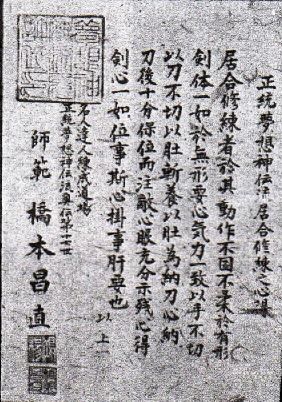 正統夢想神伝流居合修練之心得
居合修練者於其動作不固不柔於有形
剣体一如於無形要心気力一致以手不切
以刀不切以肚斬養以肚為納刀心納
刀後十分保位而注敵心眼充分示残心得
剣心一如位事斯心掛事肝要也
以上
名人達人練成道場
正統夢想神伝流奥伝第十七世
師範 橋本昌直